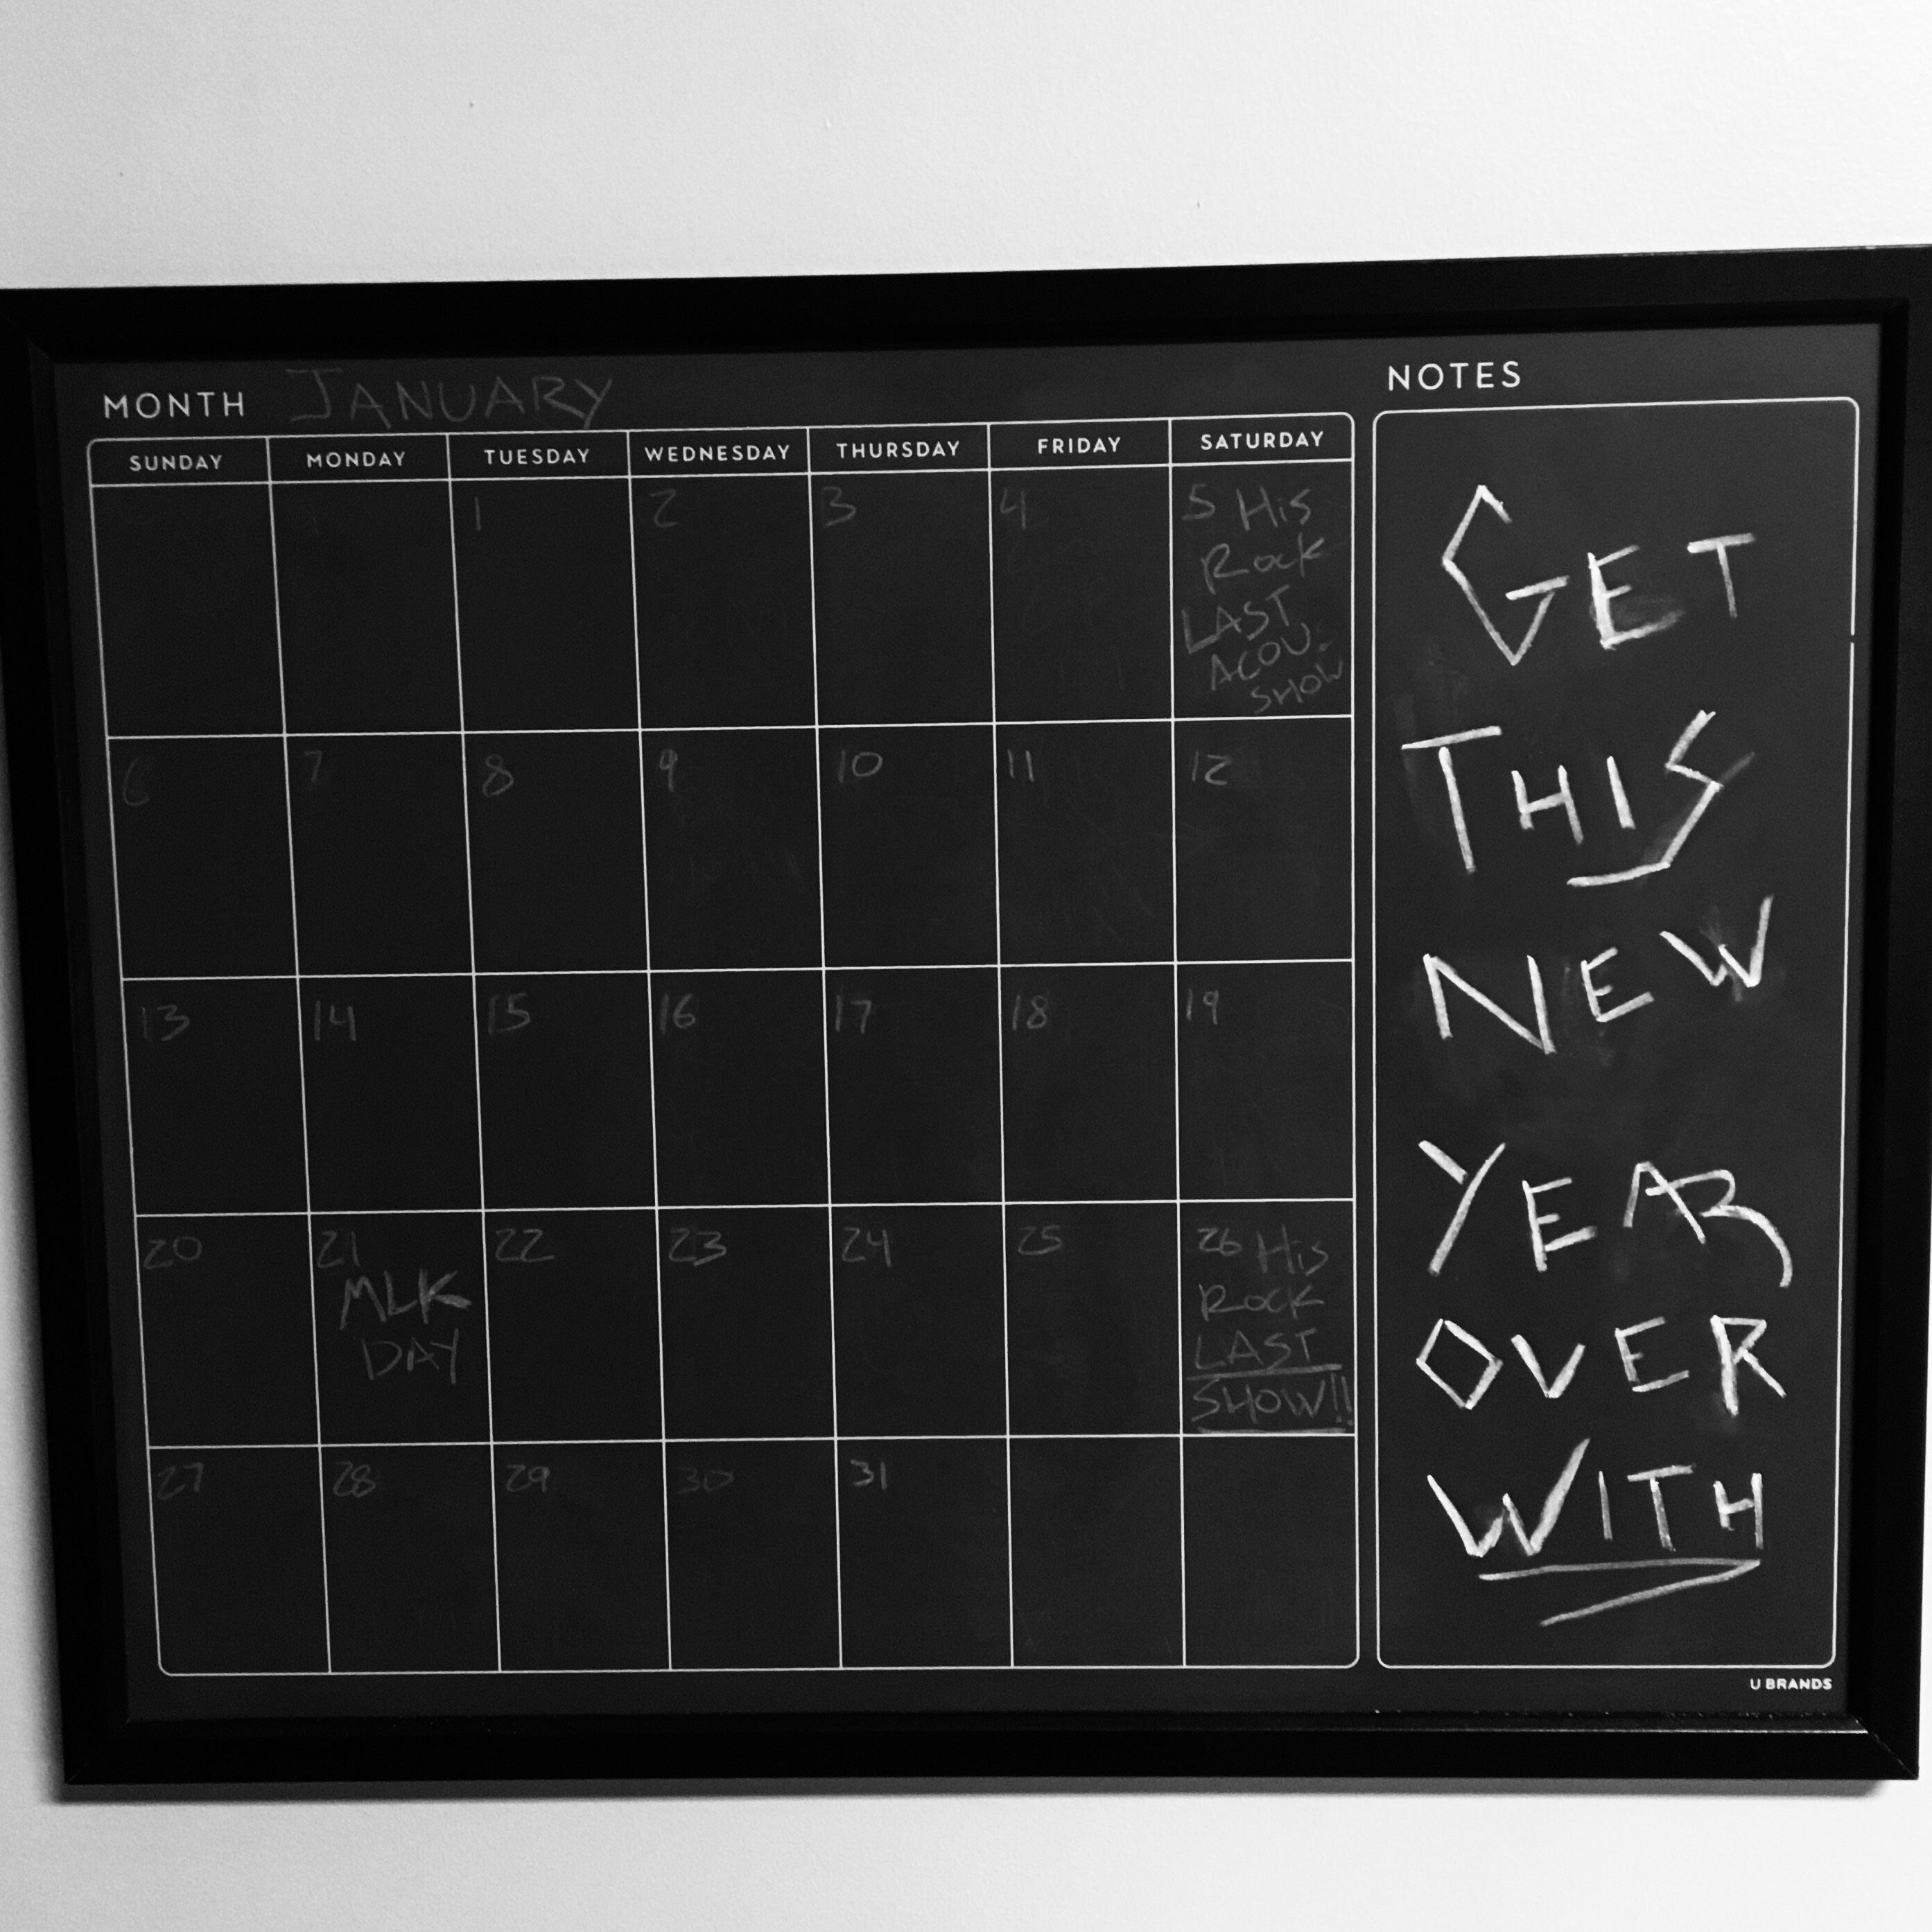 MONTH JANUARY
SUNDAY MONDAY TUESDAY WEDNESDAY THURSDAY FRIDAY SATURDAY
1 2 3 4 5 His
Rock
LAST
ACOU.
SHOW
6 7 8 9 10 11 12
13 14 15 16 17 18 19
20 21 22 23 24 25 26 His
MLK
DAY
Rock
LAST
SHOW!!
27 28 29 30 31
NOTES
GET
THIS
NEW
YEAR
OVER
WITH
U BRANDS